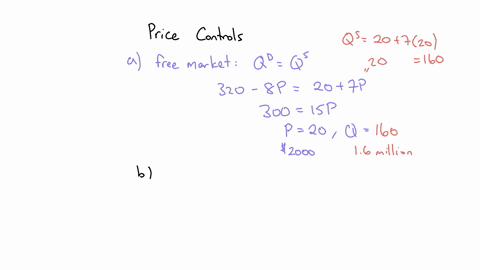 Price Controls
a) free market: Q^D = Q^S
320 - 8P = 20 + 7P
300 = 15P
P = 20, Q = 160
$2000 1.6 million
Q^S = 20 + 7(20)
20 = 160
b)